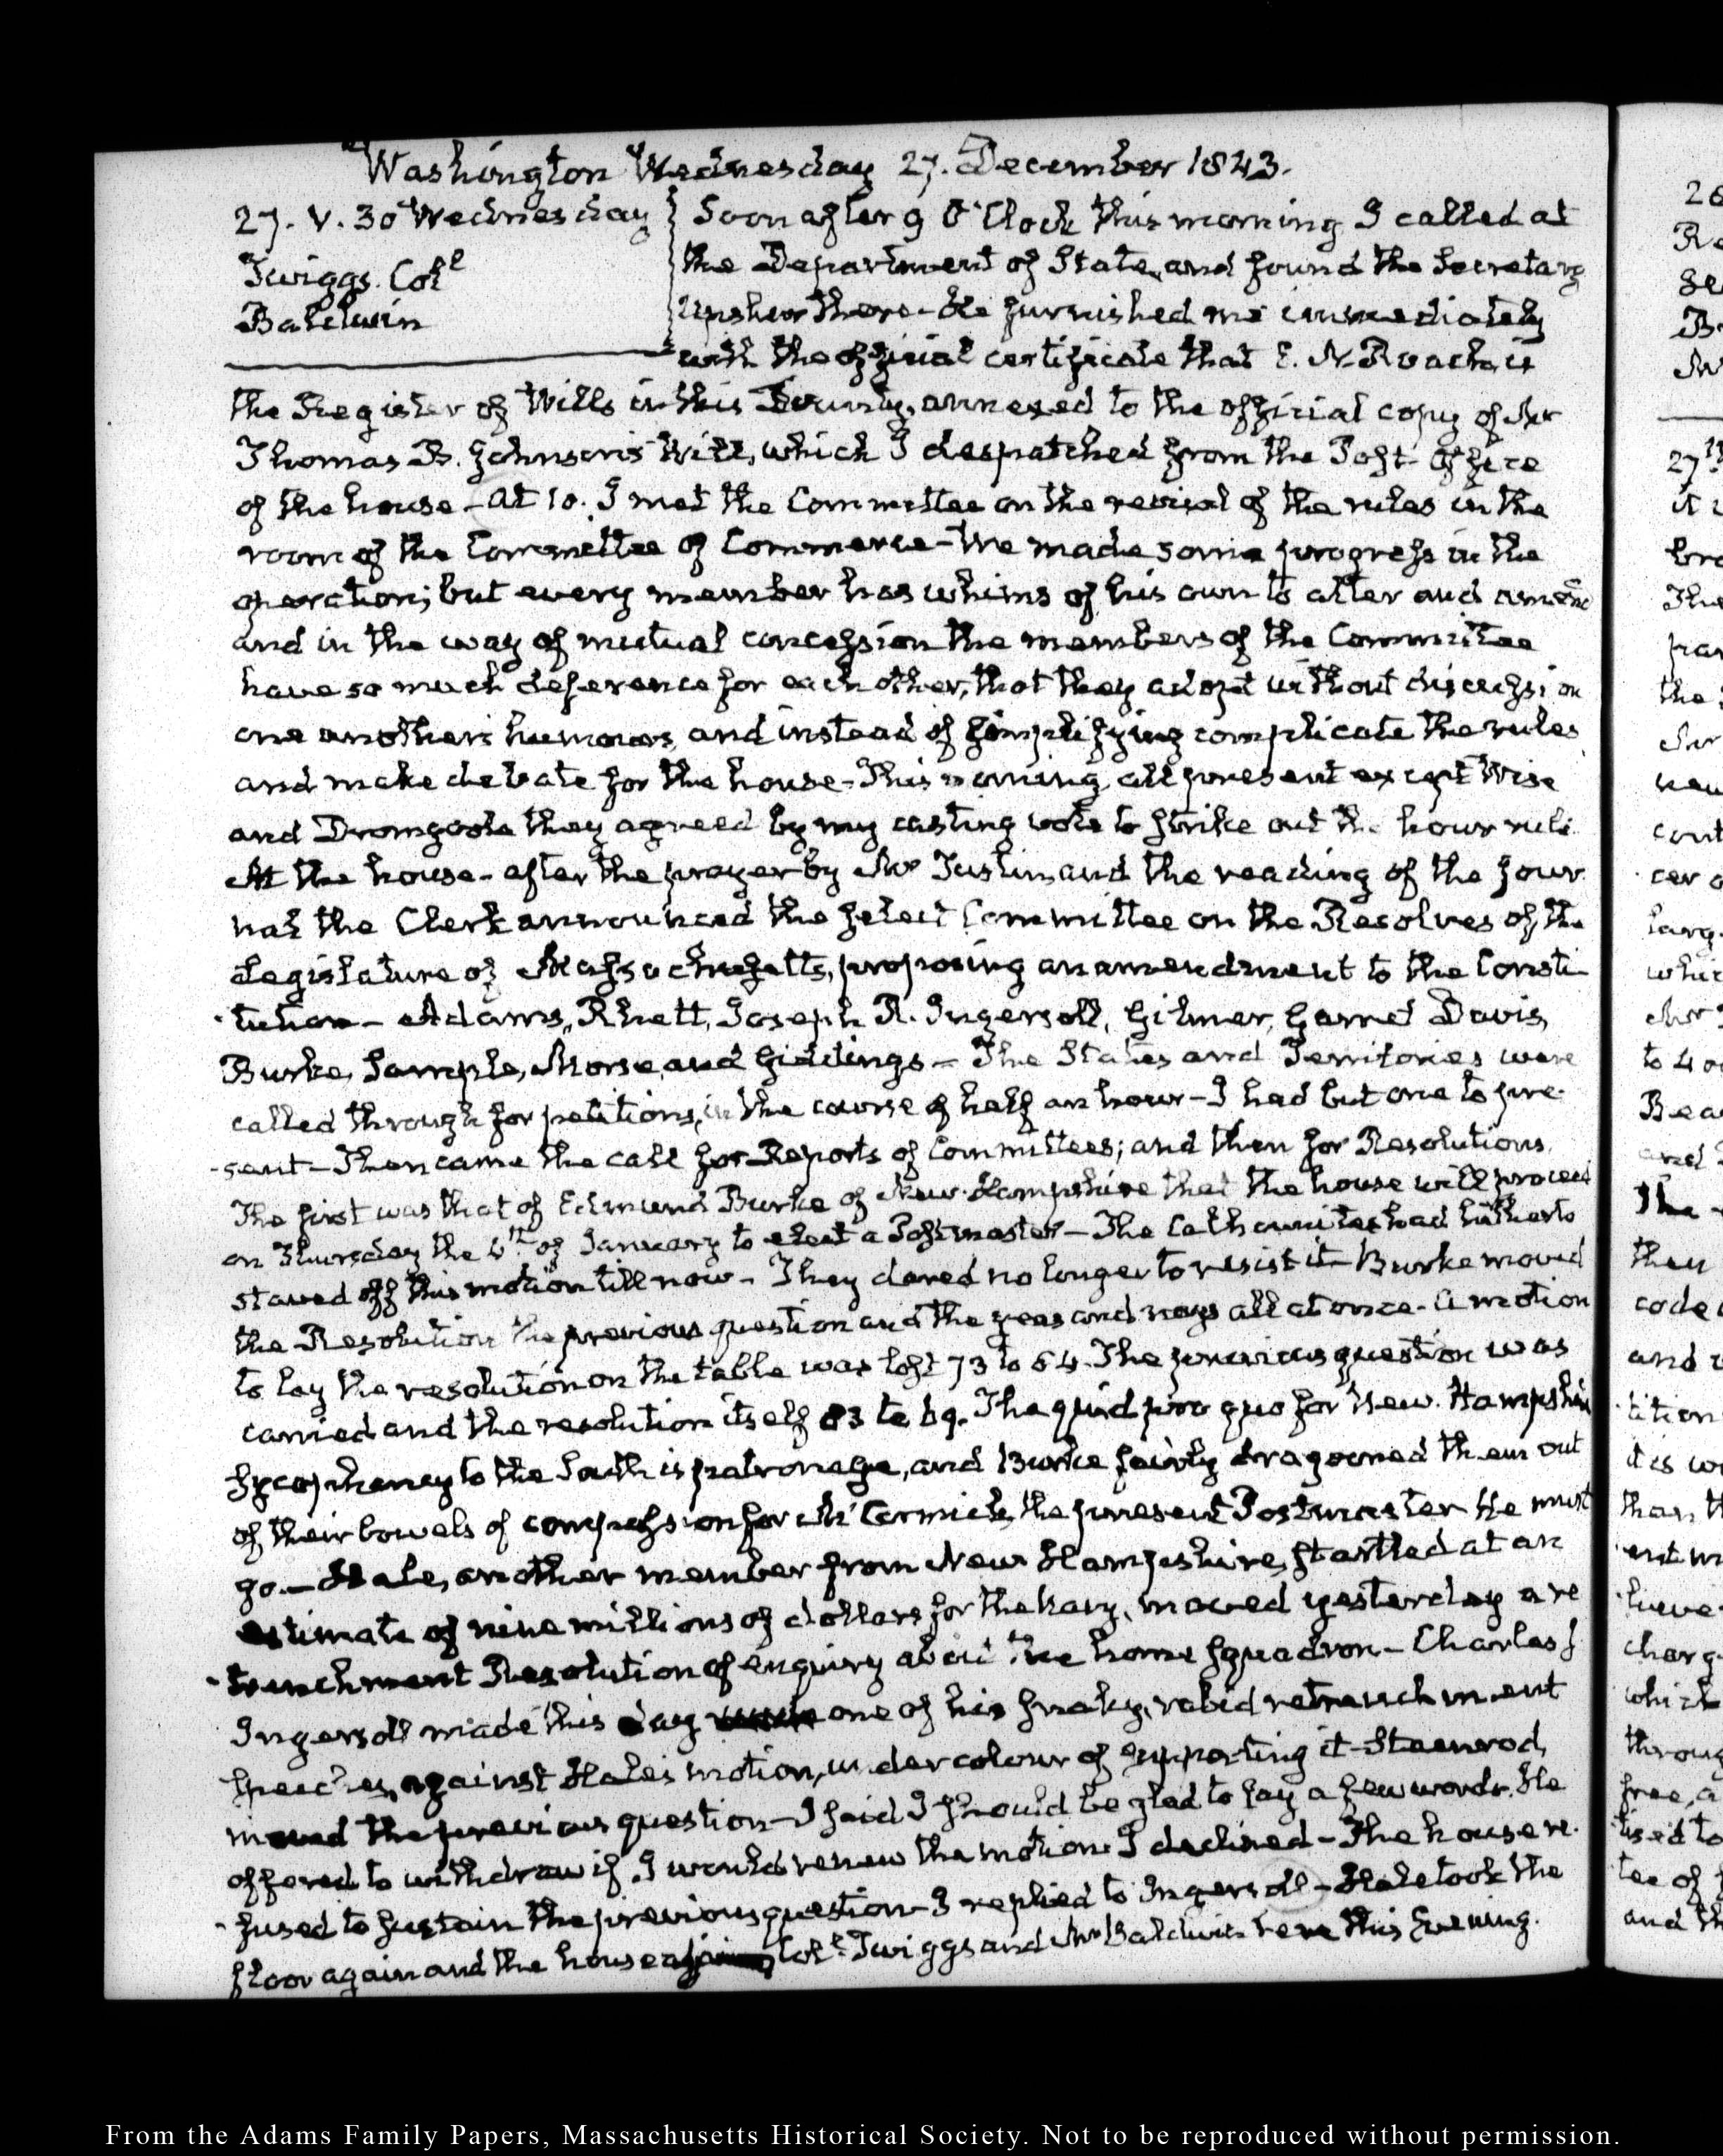 Washington Wednesday 27. December 1843.
27. V. 30 Wednesday
Twiggs. Col.l
Baldwin
Soon after 9 O'Clock this morning I called at
the Department of State, and found the Secretary
Upshur there - He furnished me immediately
with the official certificate that E. N. Roach, is
the Register of Wills in this County, annexed to the official copy of Mr
Thomas B. Johnson's Will, which I despatched from the Post-Office
of the house - At 10. I met the Committee on the revisal of the rules in the
room of the Committee of Commerce - We made some progress in the
operation; but every member has whims of his own to alter and amend
and in the way of mutual concession the members of the Committee
have so much deference for each other, that they adopt without discussion
one another's humours, and instead of simplifying complicate the rules
and make debate for the house - This morning, all present except Wise
and Dromgoole they agreed by my casting vote to strike out the hour rule.
At the house - after the prayer by Mr Tustin, and the reading of the Jour
nal the Clerk announced the select Committee on the Resolves of the
Legislature of Massachusetts, proposing an amendment to the Consti-
-tution - Adams, Rhett, Joseph R. Ingersoll, Gilmer, Garret Davis,
Burke, Sample, Morse, and Giddings - The States and Territories were
called through for petitions, in the course of half an hour - I had but one to pre-
-sent - Then came the call for Reports of Committees; and then for Resolutions.
The first was that of Edmund Burke of New-Hampshire that the house will proceed
on Thursday the 4th of January to elect a Postmaster - The Calhounites had hitherto
staved off this motion till now - They dared no longer to resist it - Burke moved
the Resolution the previous question and the yeas and nays all at once - A motion
to lay the resolution on the table was lost 73 to 84. The previous question was
carried and the resolution itself 83 to 69. The quid pro quo for New-Hampshire
sycophancy to the South is patronage, and Burke fairly dragooned them out
of their bowels of compassion for McCormick, the present Postmaster He must
go. - Hale, another member from New Hampshire, startled at an
estimate of nine millions of dollars for the Navy, moved yesterday a re
-trenchment Resolution of enquiry about the home squadron - Charles J.
Ingersoll made this day one of his freaky, rabid retrenchment
speeches, against Hale's motion, under colour of supporting it - Steenrod,
moved the previous question - I said I should be glad to say a few words. He
offered to withdraw if I would renew the motion. I declined - The house re-
-fused to sustain the previous question - I replied to Ingersoll - Hale took the
floor again and the house adj Col.l Twiggs and Mr Baldwin here this Evening.
From the Adams Family Papers, Massachusetts Historical Society. Not to be reproduced without permission.